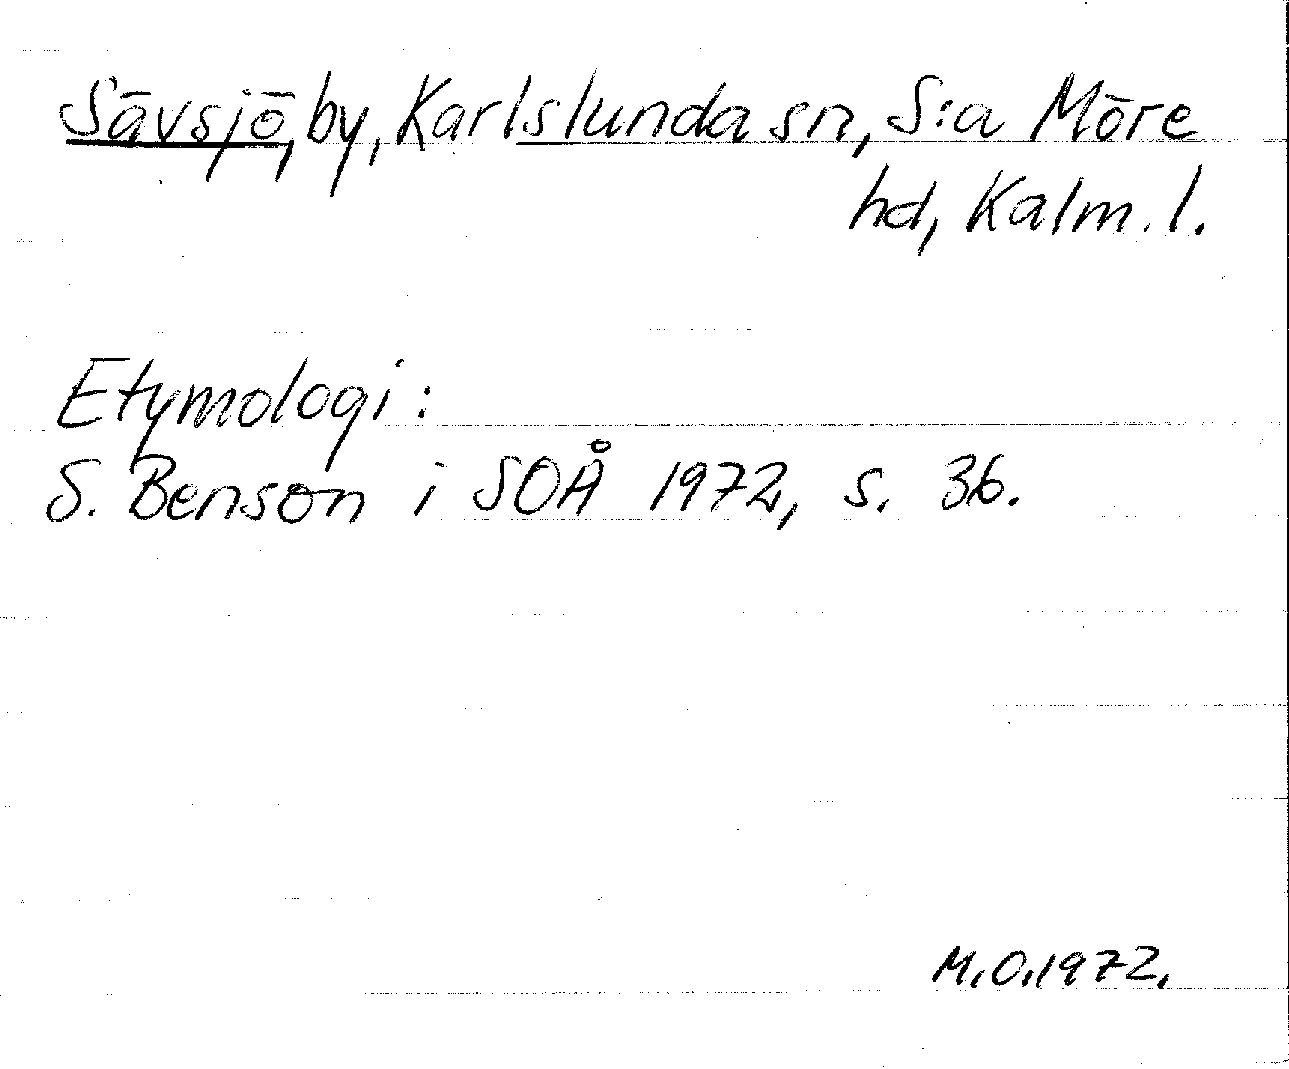 Sävsjö, by, Karlslunda sn, S:a Möre
hd, Kalm. l.
Etymologi:
S. Benson i SOÅ 1972, s. 36.
M.O.1972.